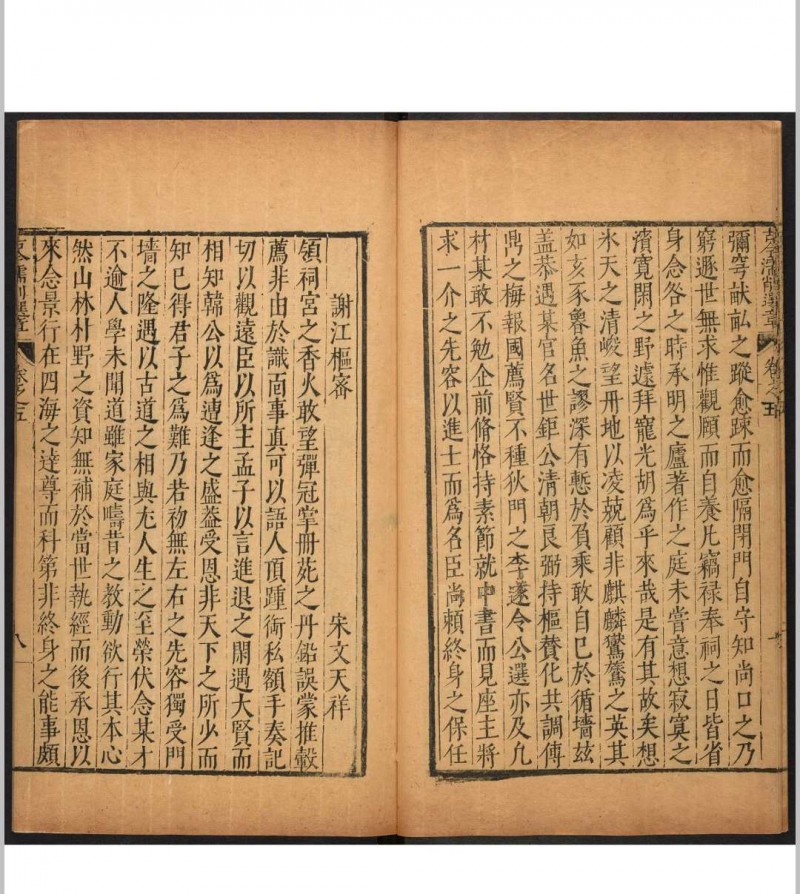 彌穹猷畝之蹤愈踈而愈隔閉門自守知尚口之乃
窮遯世無求惟觀願而自養凢竊禄奉祠之日皆省
身念咎之時承明之廬著作之庭未嘗意想寂寞之
濱寬閑之野遽拜寵光胡爲乎來哉是有其故矣想
氷天之清峻望冊地以凌兢顧非麒麟鸑鷟之英其
如亥豕魯魚之謬深有慙於負乘敢自已於循墻玆
盖恭遇某官名世鉅公清朝良弼持樞賛化共調傳
鼎之梅報國薦賢不種狄門之李遂令公選亦及凢
材某敢不勉企前脩恪持素節就中書而見座主將
求一介之先容以進士而爲名臣尚頼終身之保任
謝江樞宻
宋文天祥
領祠宮之香火敢望彈冠掌冊苑之丹鉛誤蒙推轂
薦非由於識靣事真可以語人頂踵銜私額手奏記
切以觀遠臣以所主孟子以言進退之閑遇大賢而
相知韓公以爲遭逢之盛葢受恩非天下之所少而
知已得君子之爲難乃若初無左右之先容獨受門
墻之隆遇以古道之相與尤人生之至榮伏念某才
不逾人學未聞道雖家庭疇昔之教動欲行其本心
然山林村野之資知無補於當世執經而後承恩以
來念景行在四海之達尊而科第非終身之能事頗
卷之五
八